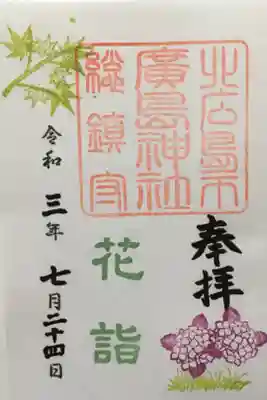 奉拝
北広島市
廣島神社
総鎮守
花詣
令和三年七月二十四日